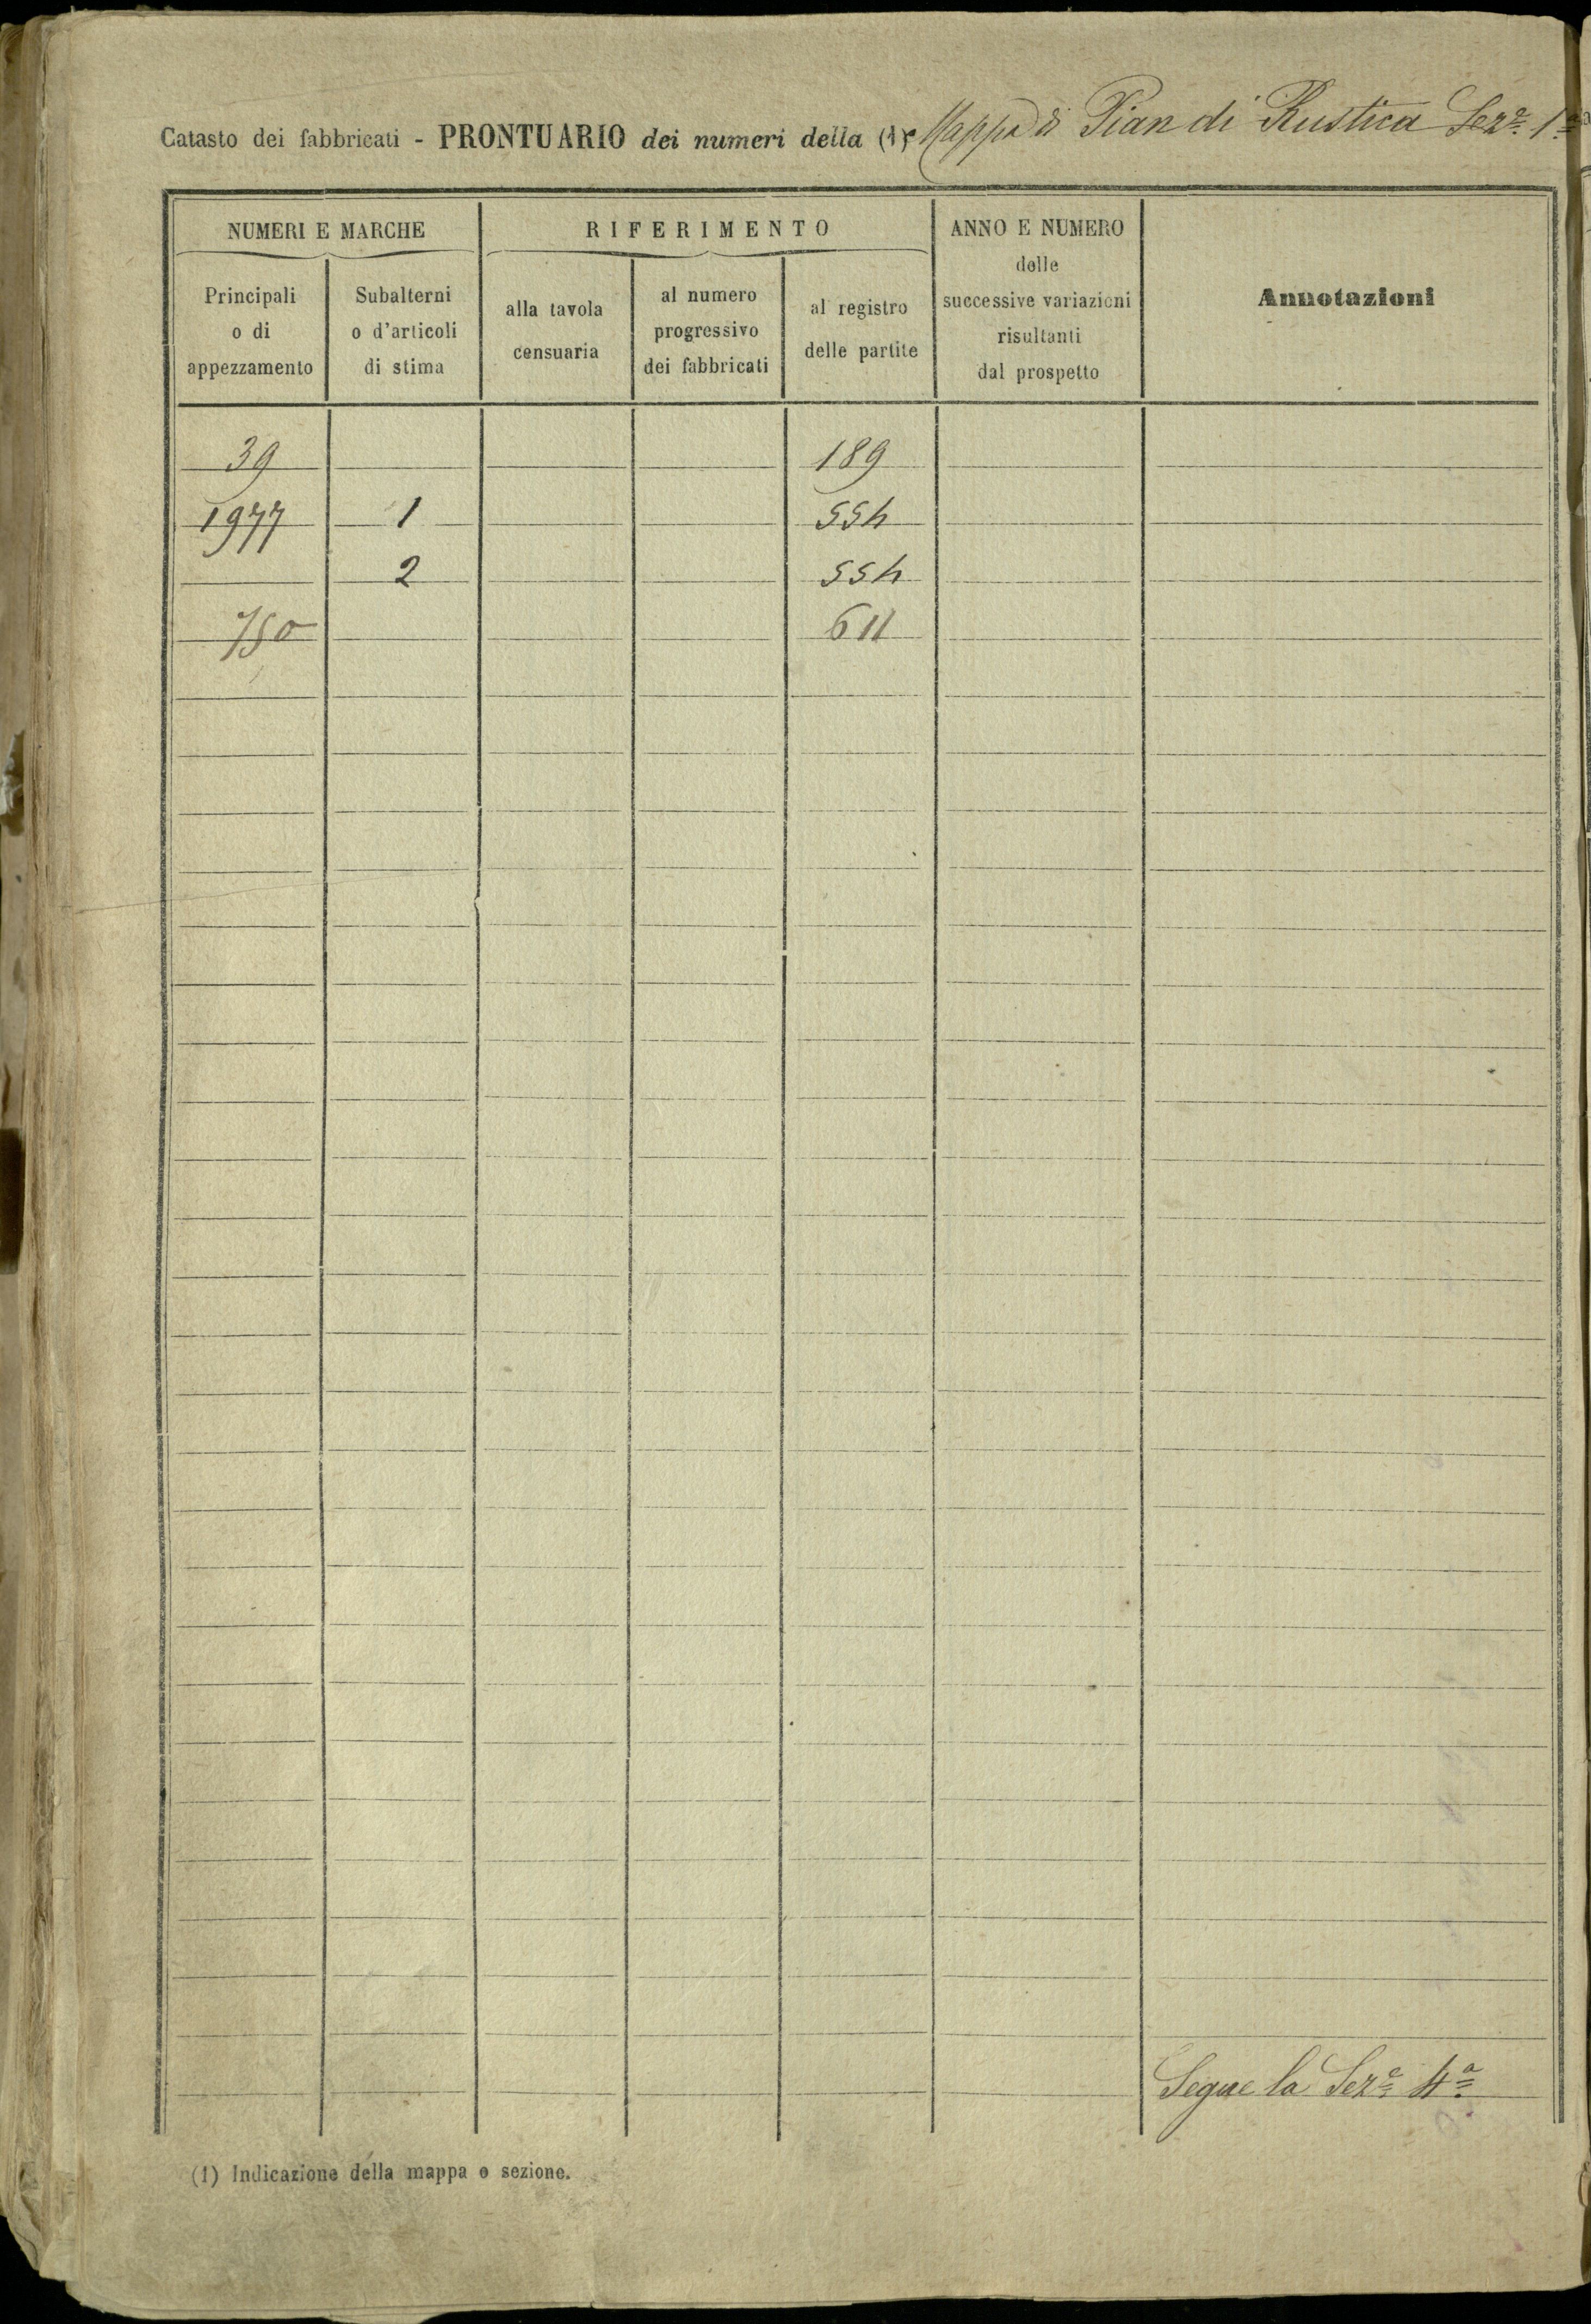 Catasto dei fabbricati - PRONTUARIO dei numeri della (1) Mappa di Pian di Rustica Sezᵉ 1ᵃ
NUMERI E MARCHE
RIFERIMENTO
ANNO E NUMERO
delle
successive variazioni
risultanti
dal prospetto
Annotazioni
Principali
o di
appezzamento
Subalterni
o d'articoli
di stima
alla tavola
censuaria
al numero
progressivo
dei fabbricati
al registro
delle partite
39 189
1977 1 554
2 554
750 611
Segue la Sezᵉ 4ᵃ
(1) Indicazione della mappa o sezione.